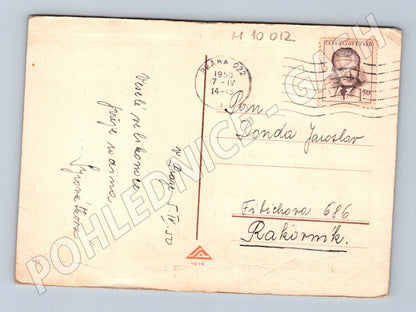 M 10 012
PRAHA 022
1950
7-IV
14-15
ČESKOSLOVENSKO
1.50
Pan
Donda Jaroslav
Fibichova 686
Rakovník.
Veselé velikonoce
přeje
v Praze 5/IV 50
POHLEDNICE - GACH